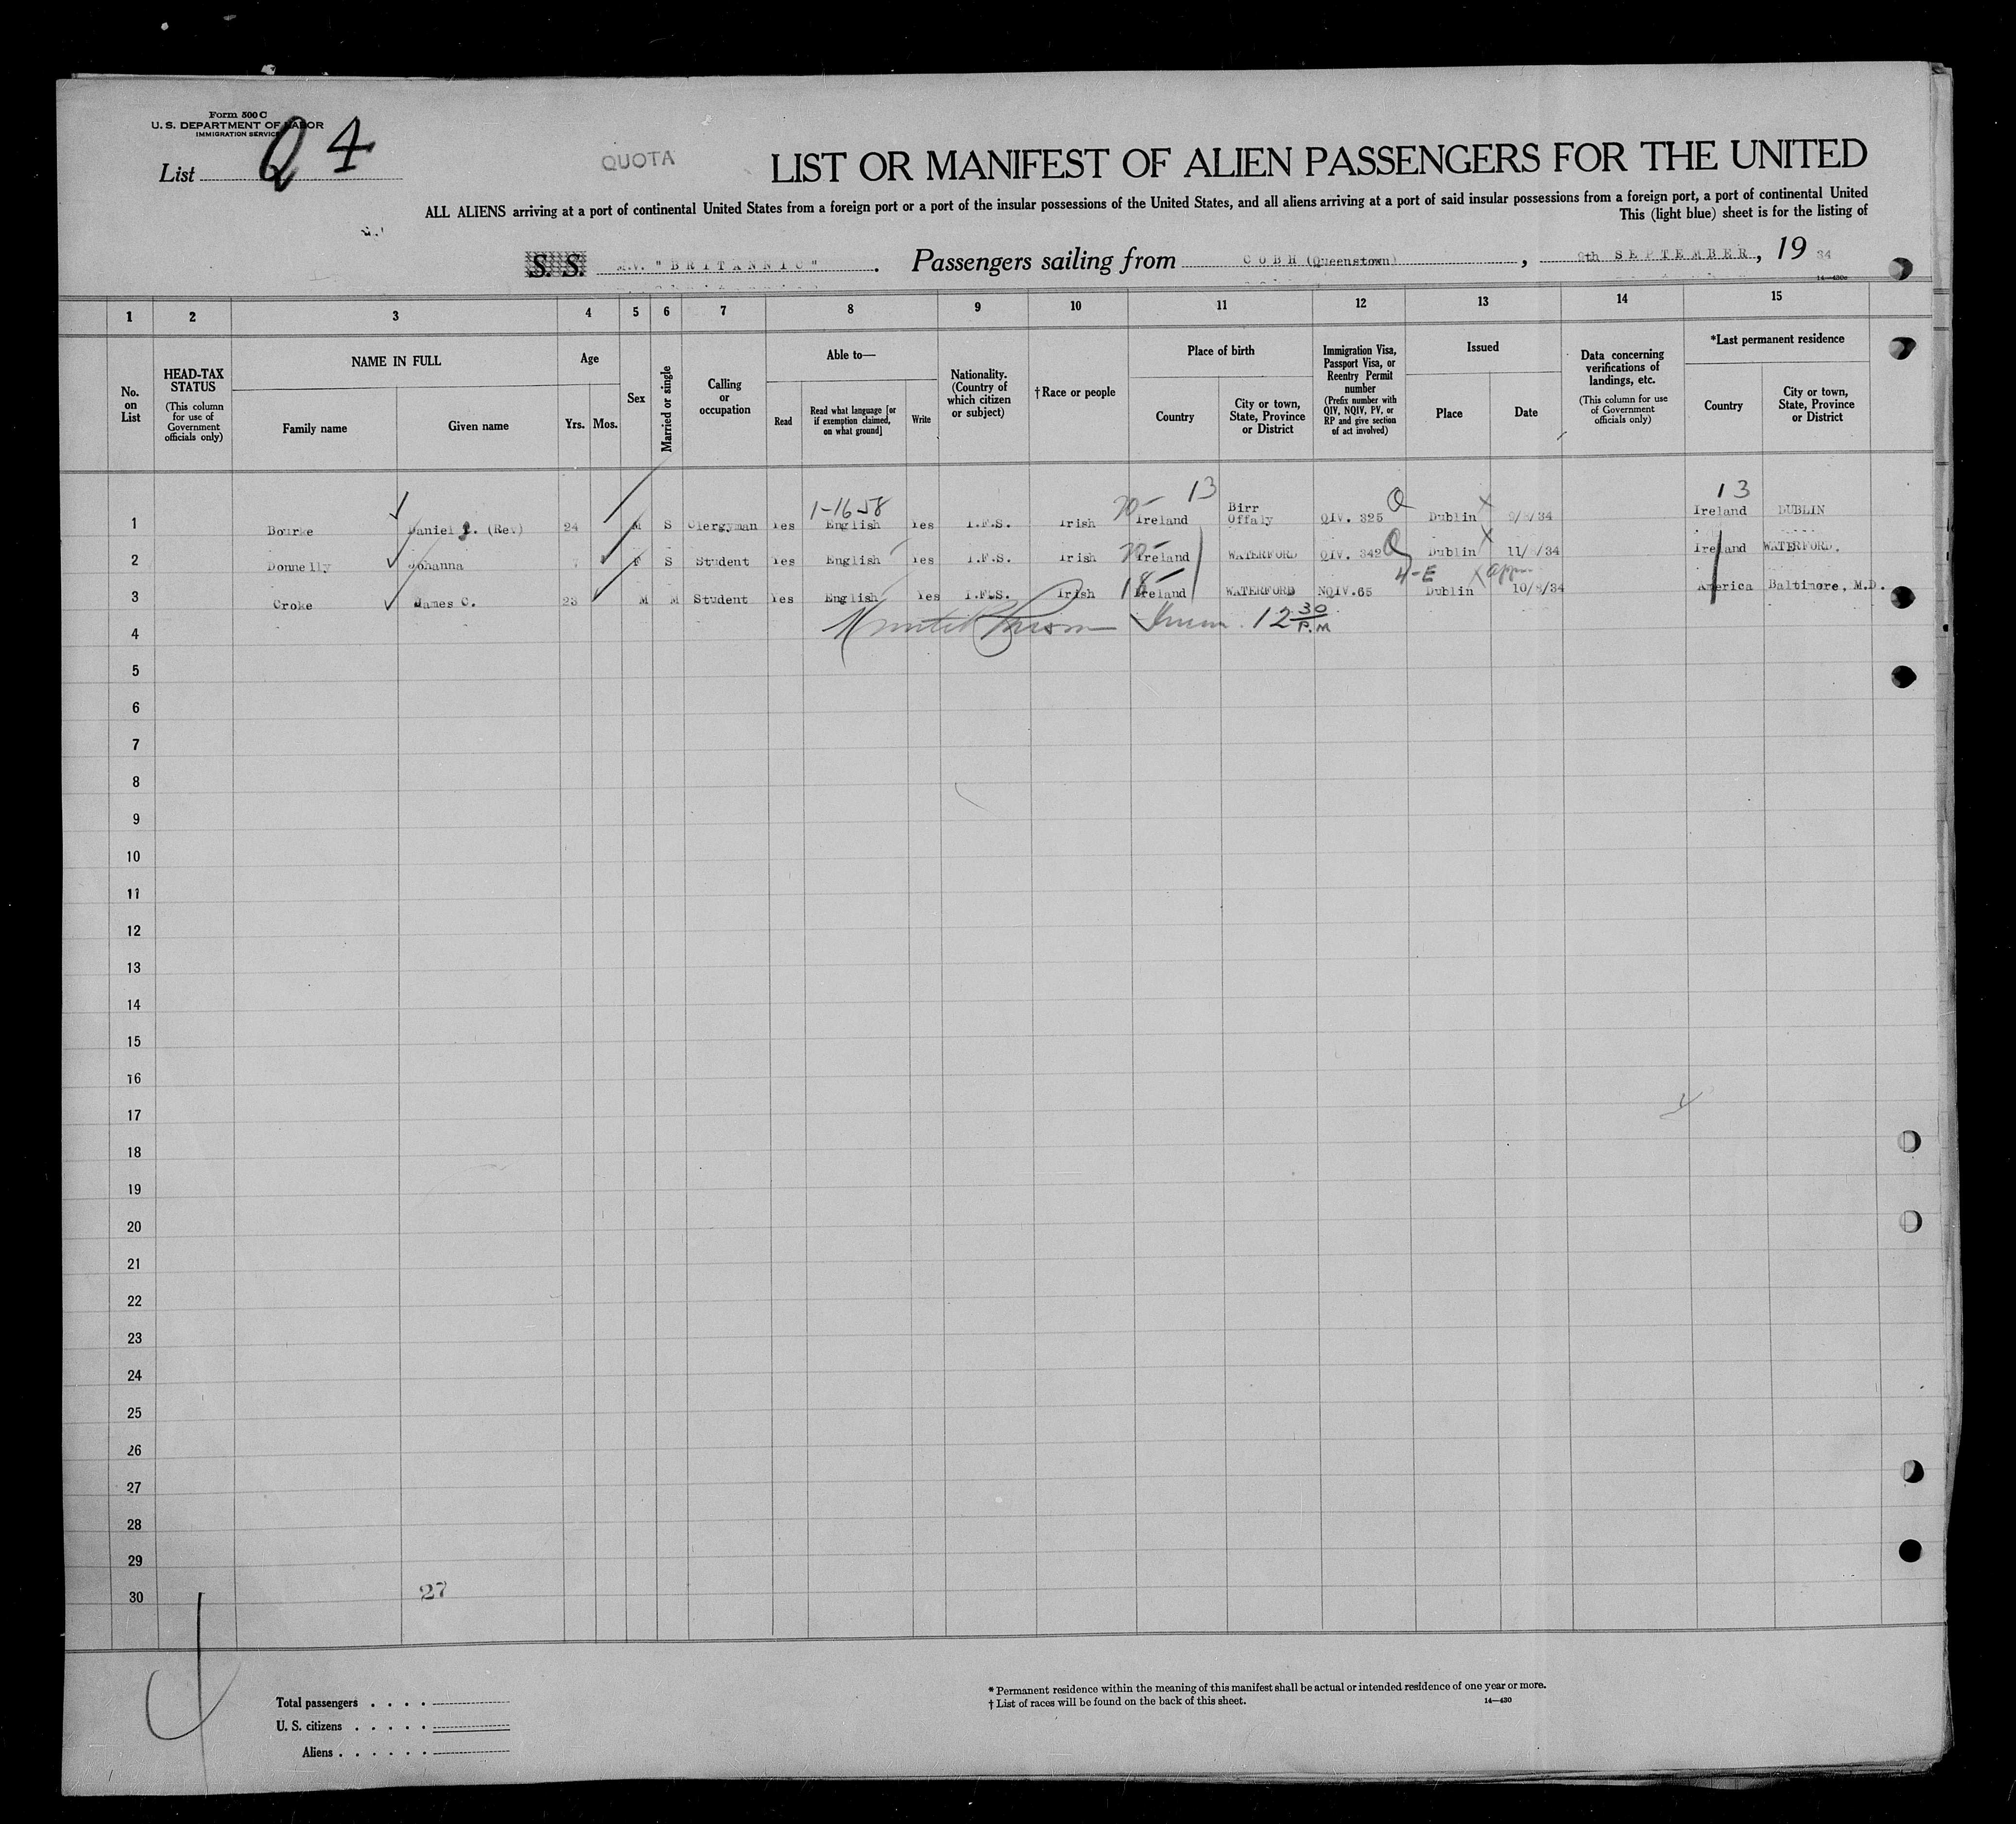 Form 500 C
U. S. DEPARTMENT OF LABOR
IMMIGRATION SERVICE
List Q 4
QUOTA
LIST OR MANIFEST OF ALIEN PASSENGERS FOR THE UNITED
ALL ALIENS arriving at a port of continental United States from a foreign port or a port of the insular possessions of the United States, and all aliens arriving at a port of said insular possessions from a foreign port, a port of continental United
This (light blue) sheet is for the listing of
S. S. M.V. "BRITANNIC". Passengers sailing from COBH (Queenstown), 9th SEPTEMBER, 19 34
14—430c
1 2 3 4 5 6 7 8 9 10 11 12 13 14 15
No. on List
HEAD-TAX STATUS
(This column for use of Government officials only)
NAME IN FULL
Family name
Given name
Age
Yrs. Mos.
Sex
Married or single
Calling or occupation
Able to—
Read
Read what language [or if exemption claimed, on what ground]
Write
Nationality. (Country of which citizen or subject)
† Race or people
Place of birth
Country
City or town, State, Province or District
Immigration Visa, Passport Visa, or Reentry Permit number
(Prefix number with QIV, NQIV, PV, or RP and give section of act involved)
Issued
Place
Date
Data concerning verifications of landings, etc.
(This column for use of Government officials only)
*Last permanent residence
Country
City or town, State, Province or District
1-16-58 13 Q X 13
1 Bourke Daniel (Rev) 24 M S Clergyman Yes English Yes I.F.S. Irish Ireland Birr Offaly QIV. 325 Dublin /34 Ireland DUBLIN
2 Donnelly Johanna F S Student Yes English Yes I.F.S. Irish Ireland WATERFORD QIV. 342 Q Dublin X 11/ /34 Ireland WATERFORD.
4-E X
3 Croke James C. 23 M M Student Yes English Yes I.F.S. Irish Ireland WATERFORD NQIV.65 Dublin 10/ /34 America Baltimore, M.D.
12 30 P.M
4
5
6
7
8
9
10
11
12
13
14
15
16
17
18
19
20
21
22
23
24
25
26
27
28
29
30
27
Total passengers . . . .
U. S. citizens . . . . .
Aliens . . . . . .
* Permanent residence within the meaning of this manifest shall be actual or intended residence of one year or more.
† List of races will be found on the back of this sheet.
14—430